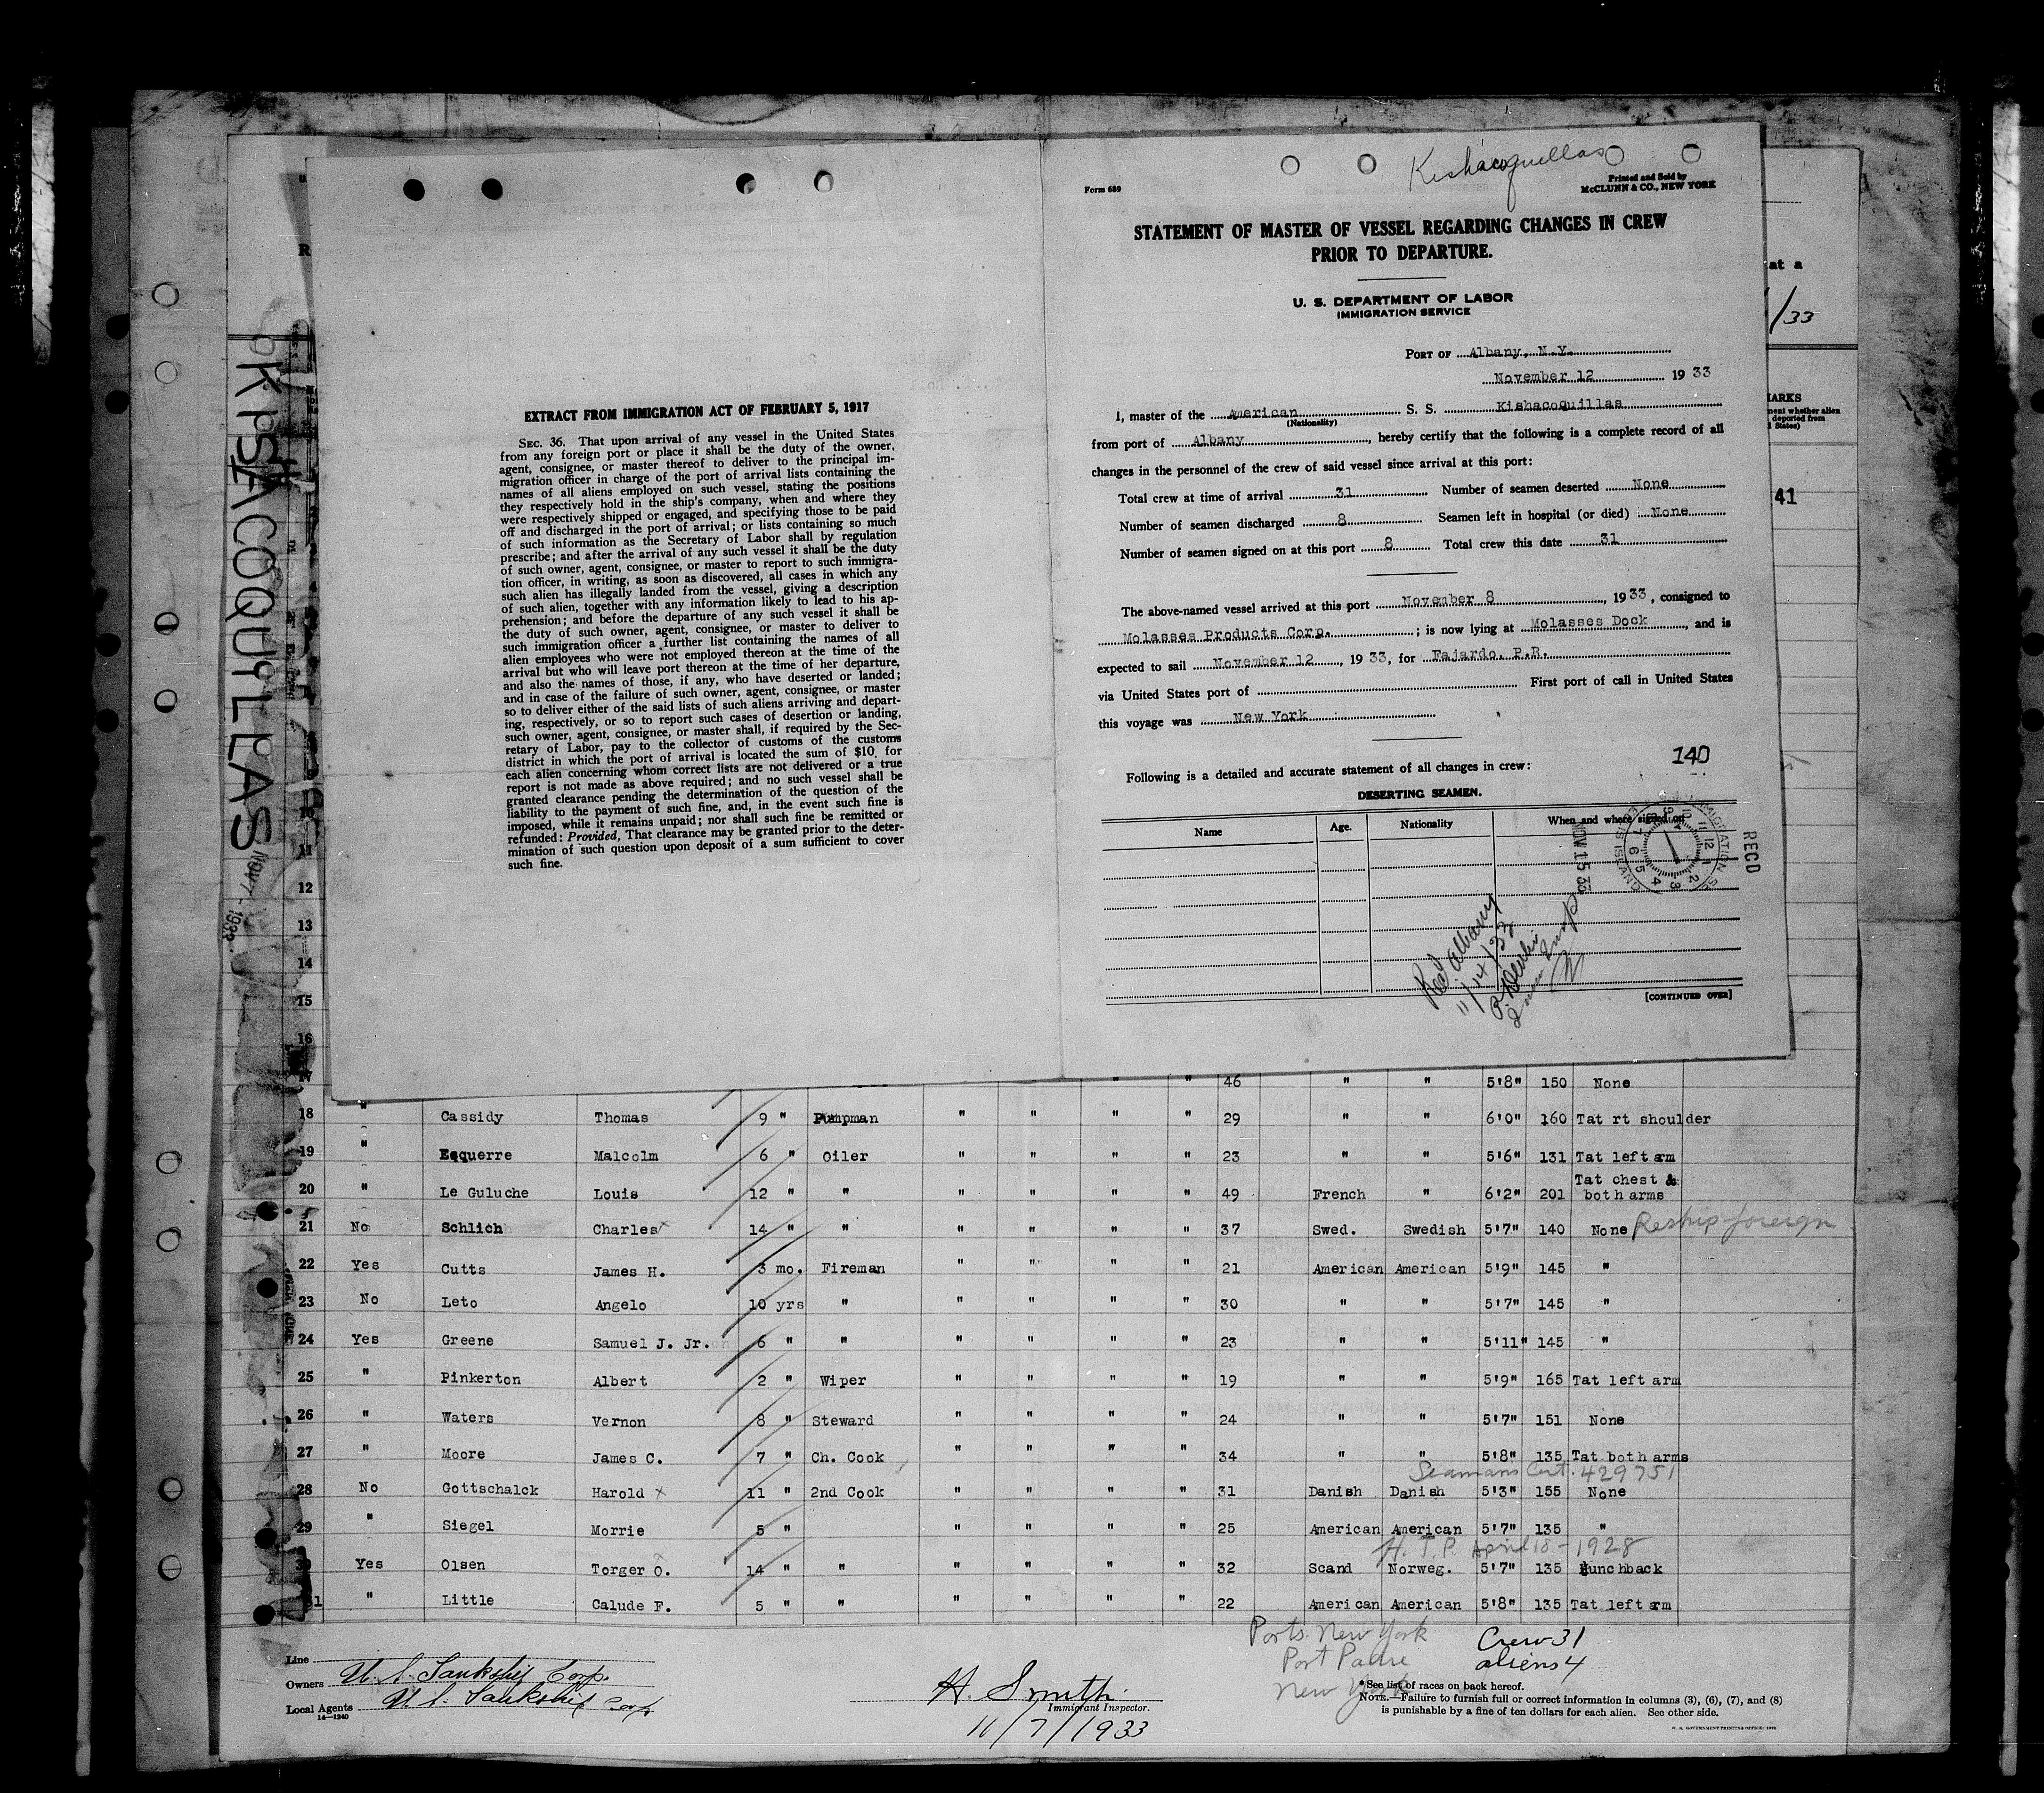 Kishacoquillas
Form 689
Printed and Sold by
McCLUNN & CO., NEW YORK
STATEMENT OF MASTER OF VESSEL REGARDING CHANGES IN CREW
PRIOR TO DEPARTURE.
U. S. DEPARTMENT OF LABOR
IMMIGRATION SERVICE
PORT OF Albany, N.Y.
November 12 19 33
I, master of the American S. S. Kishacoquillas
(Nationality)
from port of Albany, hereby certify that the following is a complete record of all
changes in the personnel of the crew of said vessel since arrival at this port:
Total crew at time of arrival 31 Number of seamen deserted None
Number of seamen discharged 8 Seamen left in hospital (or died) None
Number of seamen signed on at this port 8 Total crew this date 31
The above-named vessel arrived at this port November 8, 19 33, consigned to
Molasses Products Corp.; is now lying at Molasses Dock, and is
expected to sail November 12, 19 33, for Fajardo, P.R.
via United States port of First port of call in United States
this voyage was New York
140
Following is a detailed and accurate statement of all changes in crew:
DESERTING SEAMEN.
Name Age. Nationality When and where signed on
RECD
NOV 15 33
Rec'd Albany
11/14/33
[CONTINUED OVER]
EXTRACT FROM IMMIGRATION ACT OF FEBRUARY 5, 1917
SEC. 36. That upon arrival of any vessel in the United States
from any foreign port or place it shall be the duty of the owner,
agent, consignee, or master thereof to deliver to the principal im-
migration officer in charge of the port of arrival lists containing the
names of all aliens employed on such vessel, stating the positions
they respectively hold in the ship's company, when and where they
were respectively shipped or engaged, and specifying those to be paid
off and discharged in the port of arrival; or lists containing so much
of such information as the Secretary of Labor shall by regulation
prescribe; and after the arrival of any such vessel it shall be the duty
of such owner, agent, consignee, or master to report to such immigra-
tion officer, in writing, as soon as discovered, all cases in which any
such alien has illegally landed from the vessel, giving a description
of such alien, together with any information likely to lead to his ap-
prehension; and before the departure of any such vessel it shall be
the duty of such owner, agent, consignee, or master to deliver to
such immigration officer a further list containing the names of all
alien employees who were not employed thereon at the time of the
arrival but who will leave port thereon at the time of her departure,
and also the names of those, if any, who have deserted or landed;
and in case of the failure of such owner, agent, consignee, or master
so to deliver either of the said lists of such aliens arriving and depart-
ing, respectively, or so to report such cases of desertion or landing,
such owner, agent, consignee, or master shall, if required by the Sec-
retary of Labor, pay to the collector of customs of the customs
district in which the port of arrival is located the sum of $10 for
each alien concerning whom correct lists are not delivered or a true
report is not made as above required; and no such vessel shall be
granted clearance pending the determination of the question of the
liability to the payment of such fine, and, in the event such fine is
imposed, while it remains unpaid; nor shall such fine be remitted or
refunded: Provided, That clearance may be granted prior to the deter-
mination of such question upon deposit of a sum sufficient to cover
such fine.
at a
/33
41
NOV 7 - 1933
11
12
13
14
15
16
17 " " 46 " " 5'8" 150 None
18 " Cassidy Thomas 9 " Pumpman " " " " 29 " " 6'0" 160 Tat rt shoulder
19 " Esquerre Malcolm 6 " Oiler " " " " 23 " " 5'6" 131 Tat left arm
20 " Le Guluche Louis 12 " " " " " " 49 French " 6'2" 201 Tat chest & both arms
21 No Schlich Charles x 14 " " " " " " 37 Swed. Swedish 5'7" 140 None Reship foreign
22 Yes Cutts James H. 3 mo. Fireman " " " " 21 American American 5'9" 145 "
23 No Leto Angelo 10 yrs " " " " " 30 " " 5'7" 145 "
24 Yes Greene Samuel J. Jr. 6 " " " " " " 23 " " 5'11" 145 "
25 " Pinkerton Albert 2 " Wiper " " " " 19 " " 5'9" 165 Tat left arm
26 " Waters Vernon 8 " Steward " " " " 24 " " 5'7" 151 None
27 " Moore James C. 7 " Ch. Cook " " " " 34 " " 5'8" 135 Tat both arms
Seamans Cert. 429751
28 No Gottschalck Harold x 11 " 2nd Cook " " " " 31 Danish Danish 5'3" 155 None
29 " Siegel Morrie 5 " " " " " 25 American American 5'7" 135 "
H. T. P. April 18 - 1928
30 Yes Olsen Torger O. 14 " " " " " " 32 Scand Norweg. 5'7" 135 Hunchback
31 " Little Calude F. 5 " " " " " " 22 American American 5'8" 135 Tat left arm
Ports New York
New York
Crew 31
aliens 4
Line
Owners U. S. Tankship Corp.
Local Agents U. S. Tankship Corp.
14—1240
H. Smith
Immigrant Inspector.
11/7/1933
* See list of races on back hereof.
NOTE.—Failure to furnish full or correct information in columns (3), (6), (7), and (8)
is punishable by a fine of ten dollars for each alien. See other side.